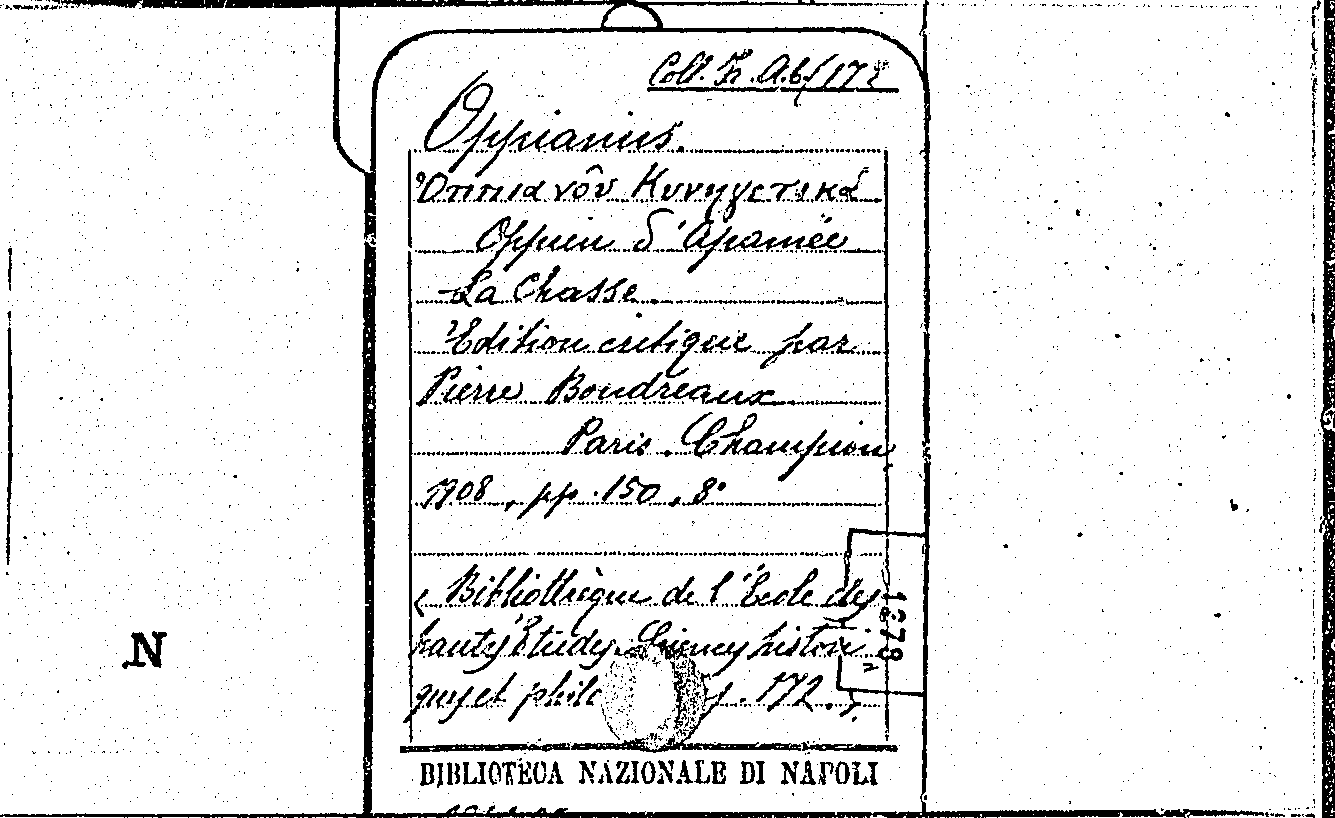 Coll. Fr. A.6/172
Oppianus.
Ὀππιανοῦ Κυνηγετικά
Oppien d'Apamée
La Chasse.
Edition critique par
Pierre Boudreaux
Paris. Champion
1908, pp. 150, 8°
(Bibliothèque de l'École des
hautes Études. Sciences histori
ques et philo s. 172.).
1878
N
BIBLIOTECA NAZIONALE DI NAPOLI